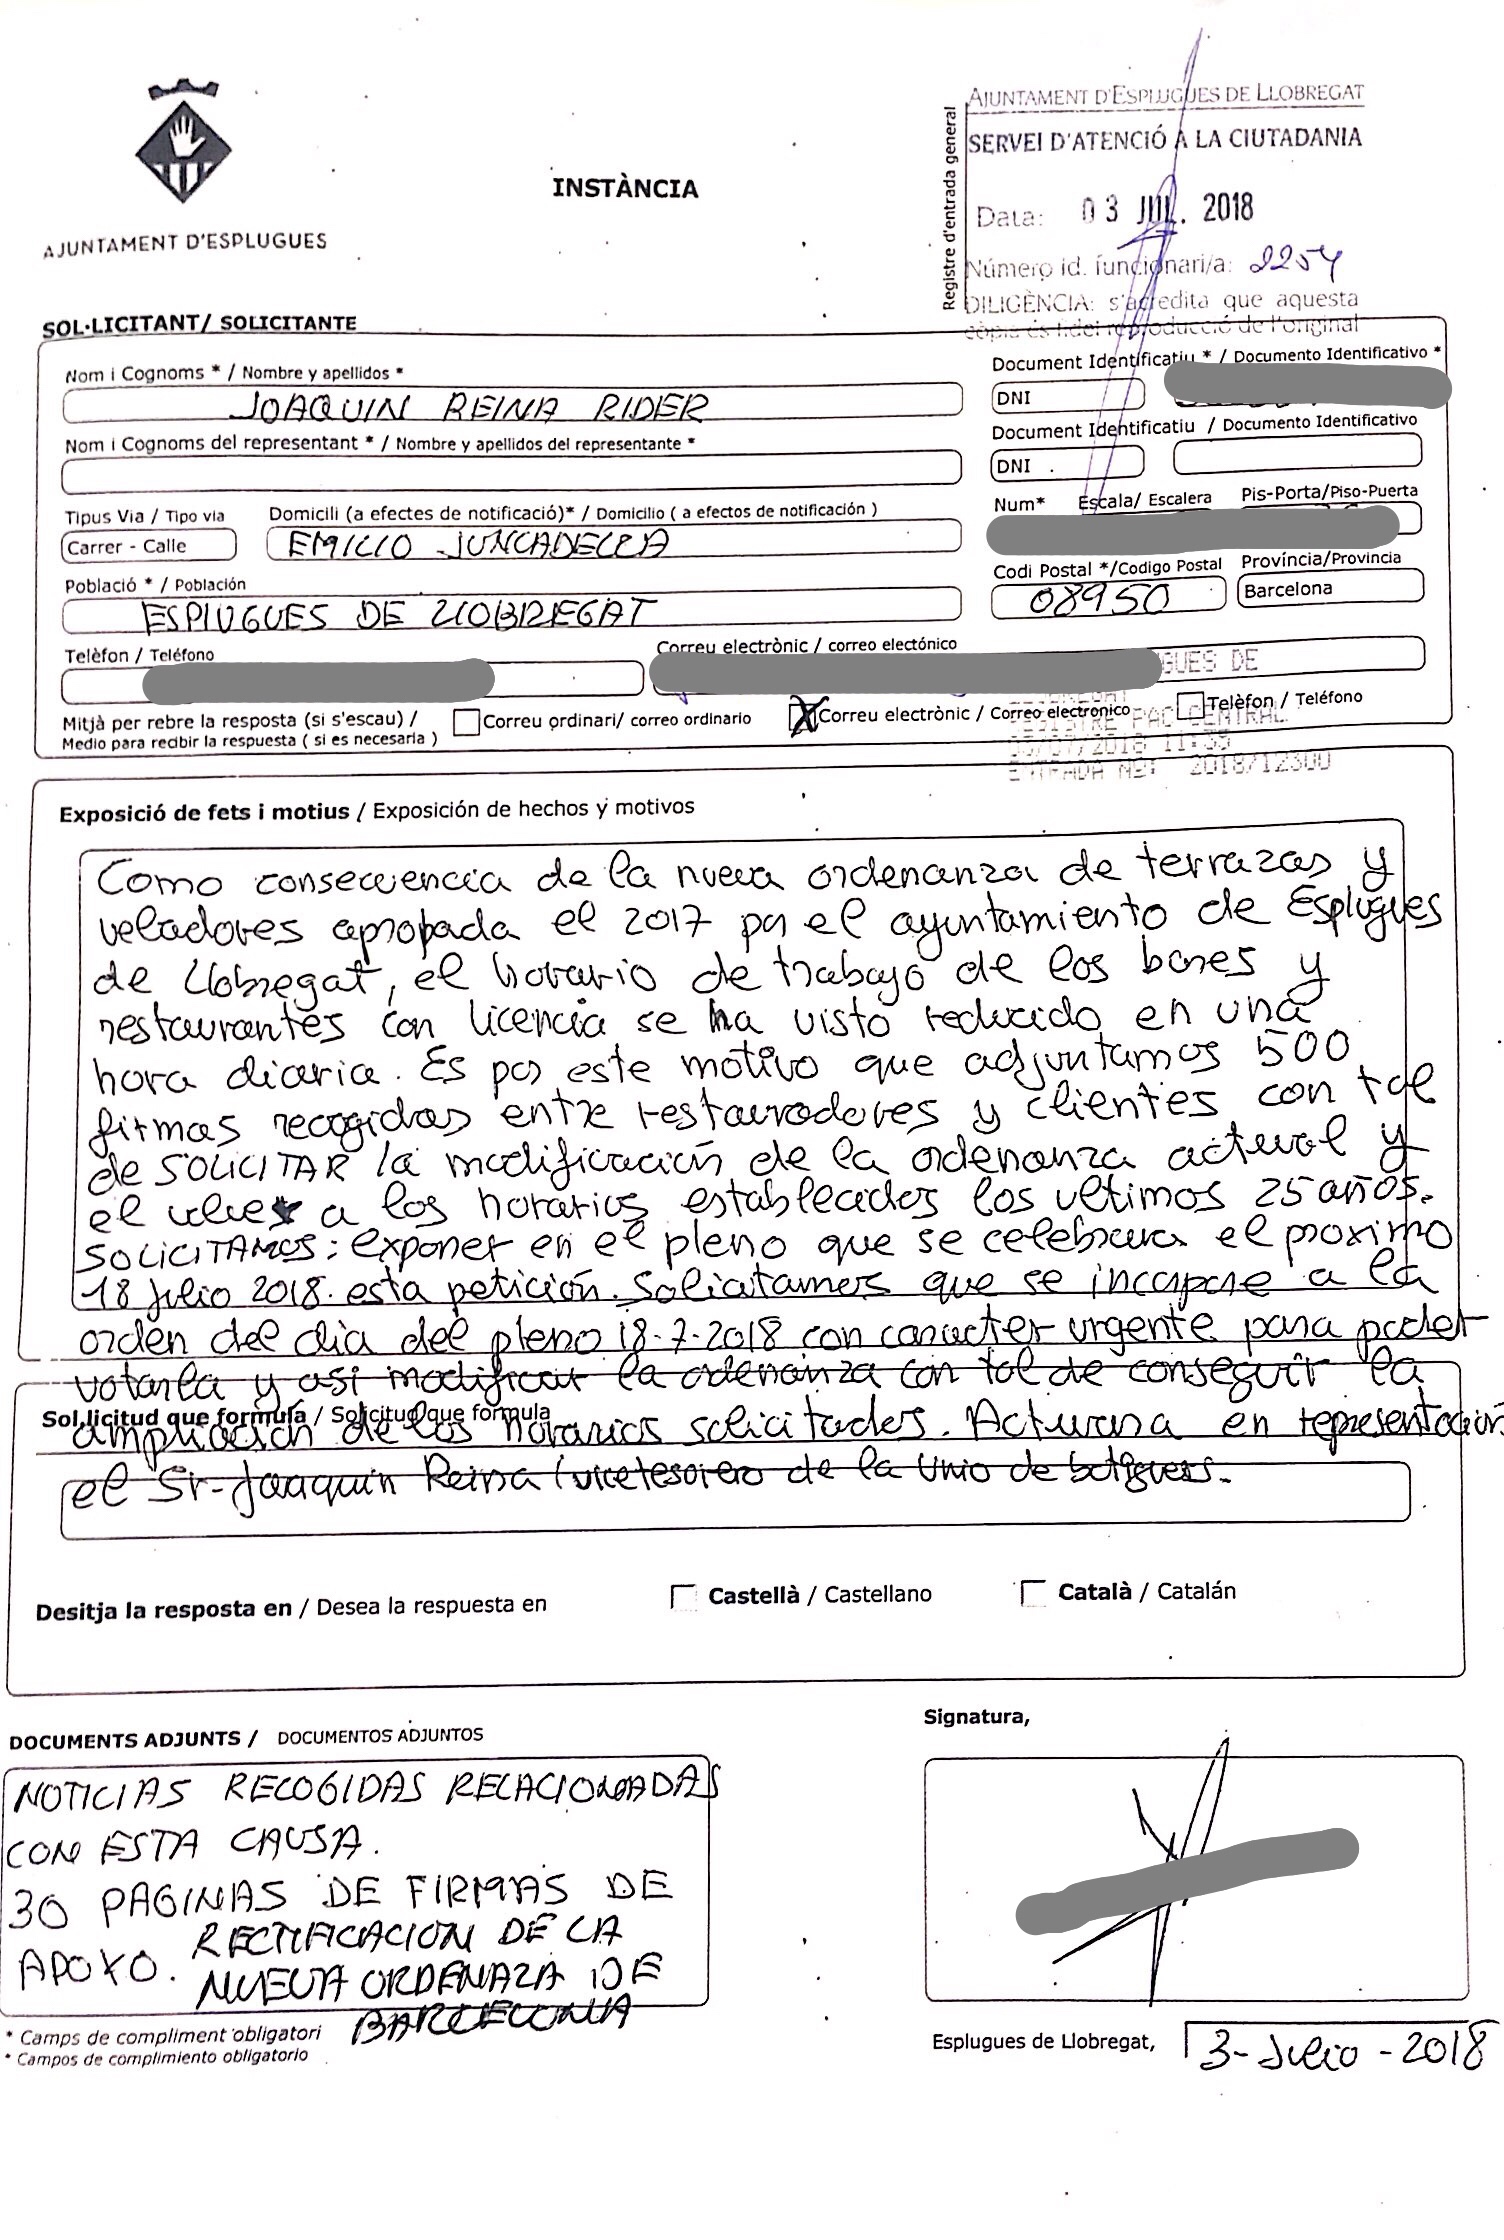 AJUNTAMENT D'ESPLUGUES
INSTÀNCIA
Registre d'entrada general
AJUNTAMENT D'ESPLUGUES DE LLOBREGAT
SERVEI D'ATENCIÓ A LA CIUTADANIA
Data: 03 JUL. 2018
Número id. funcionari/a: 2254
DILIGÈNCIA: s'acredita que aquesta
còpia és fidel reproducció de l'original
SOL·LICITANT/ SOLICITANTE
Nom i Cognoms * / Nombre y apellidos *
Document Identificatiu * / Documento Identificativo *
JOAQUIN REINA RIDER
DNI
Nom i Cognoms del representant * / Nombre y apellidos del representante *
Document Identificatiu / Documento Identificativo
DNI
Tipus Via / Tipo via
Domicili (a efectes de notificació)* / Domicilio ( a efectos de notificación )
Num*
Escala/ Escalera
Pis-Porta/Piso-Puerta
Carrer - Calle
EMILIO JUNCADELLA
Població * / Población
Codi Postal */Codigo Postal
Província/Provincia
ESPLUGUES DE LLOBREGAT
08950
Barcelona
Telèfon / Teléfono
Correu electrònic / correo electónico
GUES DE
Mitjà per rebre la resposta (si s'escau) /
Medio para recibir la respuesta ( si es necesaria )
Correu ordinari/ correo ordinario
X Correu electrònic / Correo electronico
Telèfon / Teléfono
PAC CENTRAL
03/07/2018 11:35
ENTRADA Nº: 2018/12300
Exposició de fets i motius / Exposición de hechos y motivos
Como consecuencia de la nueva ordenanza de terrazas y
veladores aprobada el 2017 por el ayuntamiento de Esplugues
de Llobregat, el horario de trabajo de los bares y
restaurantes con licencia se ha visto reducido en una
hora diaria. Es por este motivo que adjuntamos 500
firmas recogidas entre restauradores y clientes con tal
de SOLICITAR la modificación de la ordenanza actual y
el a los horarios establecidos los ultimos 25 años.
SOLICITAMOS: exponer en el pleno que se celebrara el proximo
18 julio 2018. esta petición. Solicitamos que se incorpore a la
orden del dia del pleno 18-7-2018 con caracter urgente para poder
votarla y asi modificar la ordenanza con tal de conseguir la
Sol.licitud que formula / Solicitud que formula
ampliación de los horarios solicitados. Actuara en representación
el Sr. Joaquin Reina (vicetesorero de la Unio de botiguers.
Desitja la resposta en / Desea la respuesta en
Castellà / Castellano
Català / Catalán
DOCUMENTS ADJUNTS / DOCUMENTOS ADJUNTOS
Signatura,
NOTICIAS RECOGIDAS RELACIONADAS
CON ESTA CAUSA.
30 PAGINAS DE FIRMAS DE
APOYO. RECTIFICACION DE LA
NUEVA ORDENAZA DE
BARCELONA
* Camps de compliment obligatori
* Campos de complimiento obligatorio
Esplugues de Llobregat, 3-Julio-2018